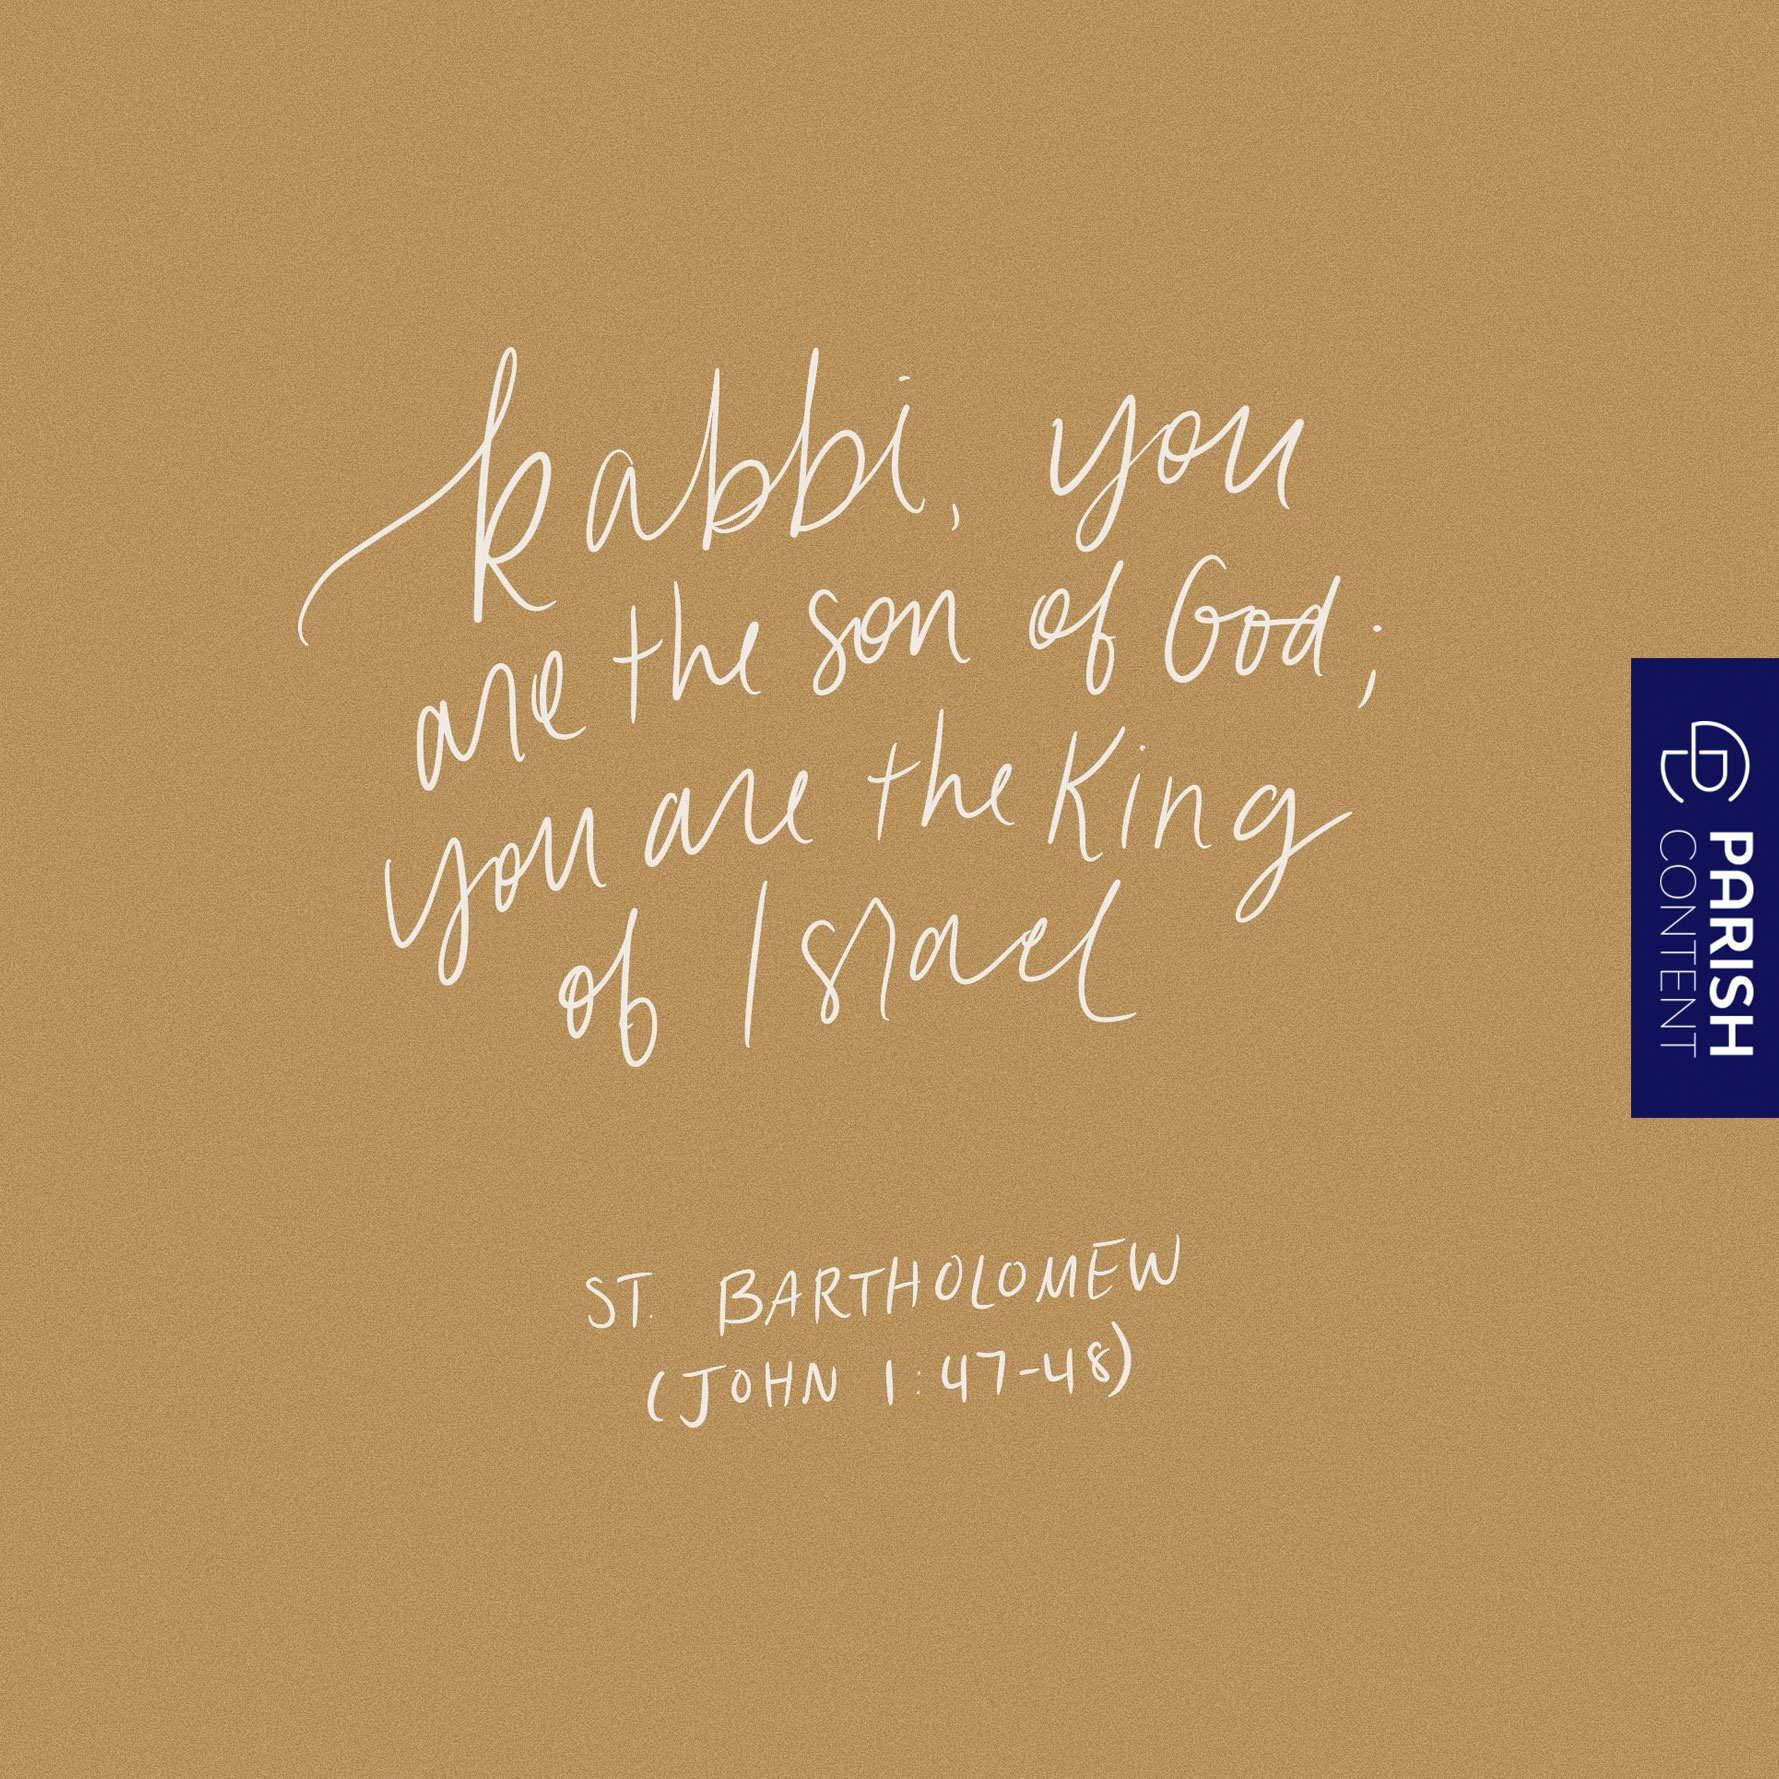 Rabbi, you
are the son of God;
you are the King
of Israel
ST. BARTHOLOMEW
(JOHN 1:47-48)
PARISH
CONTENT